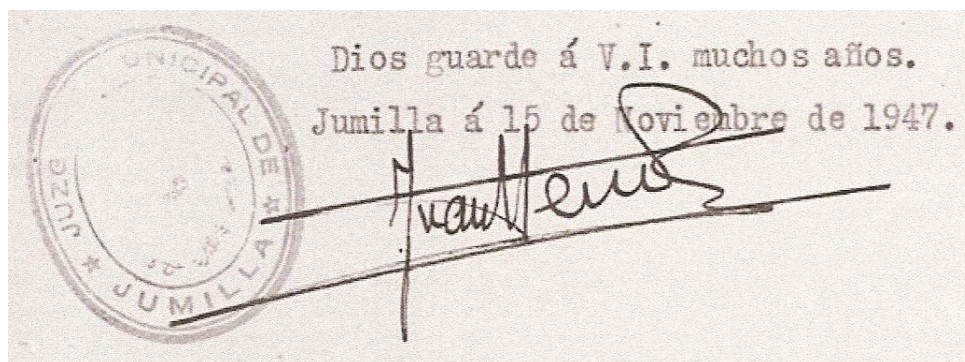 Dios guarde á V.I. muchos años.
Jumilla á 15 de Noviembre de 1947.
JUZG UNICIPAL DE
★ JUMILLA ★
Juan